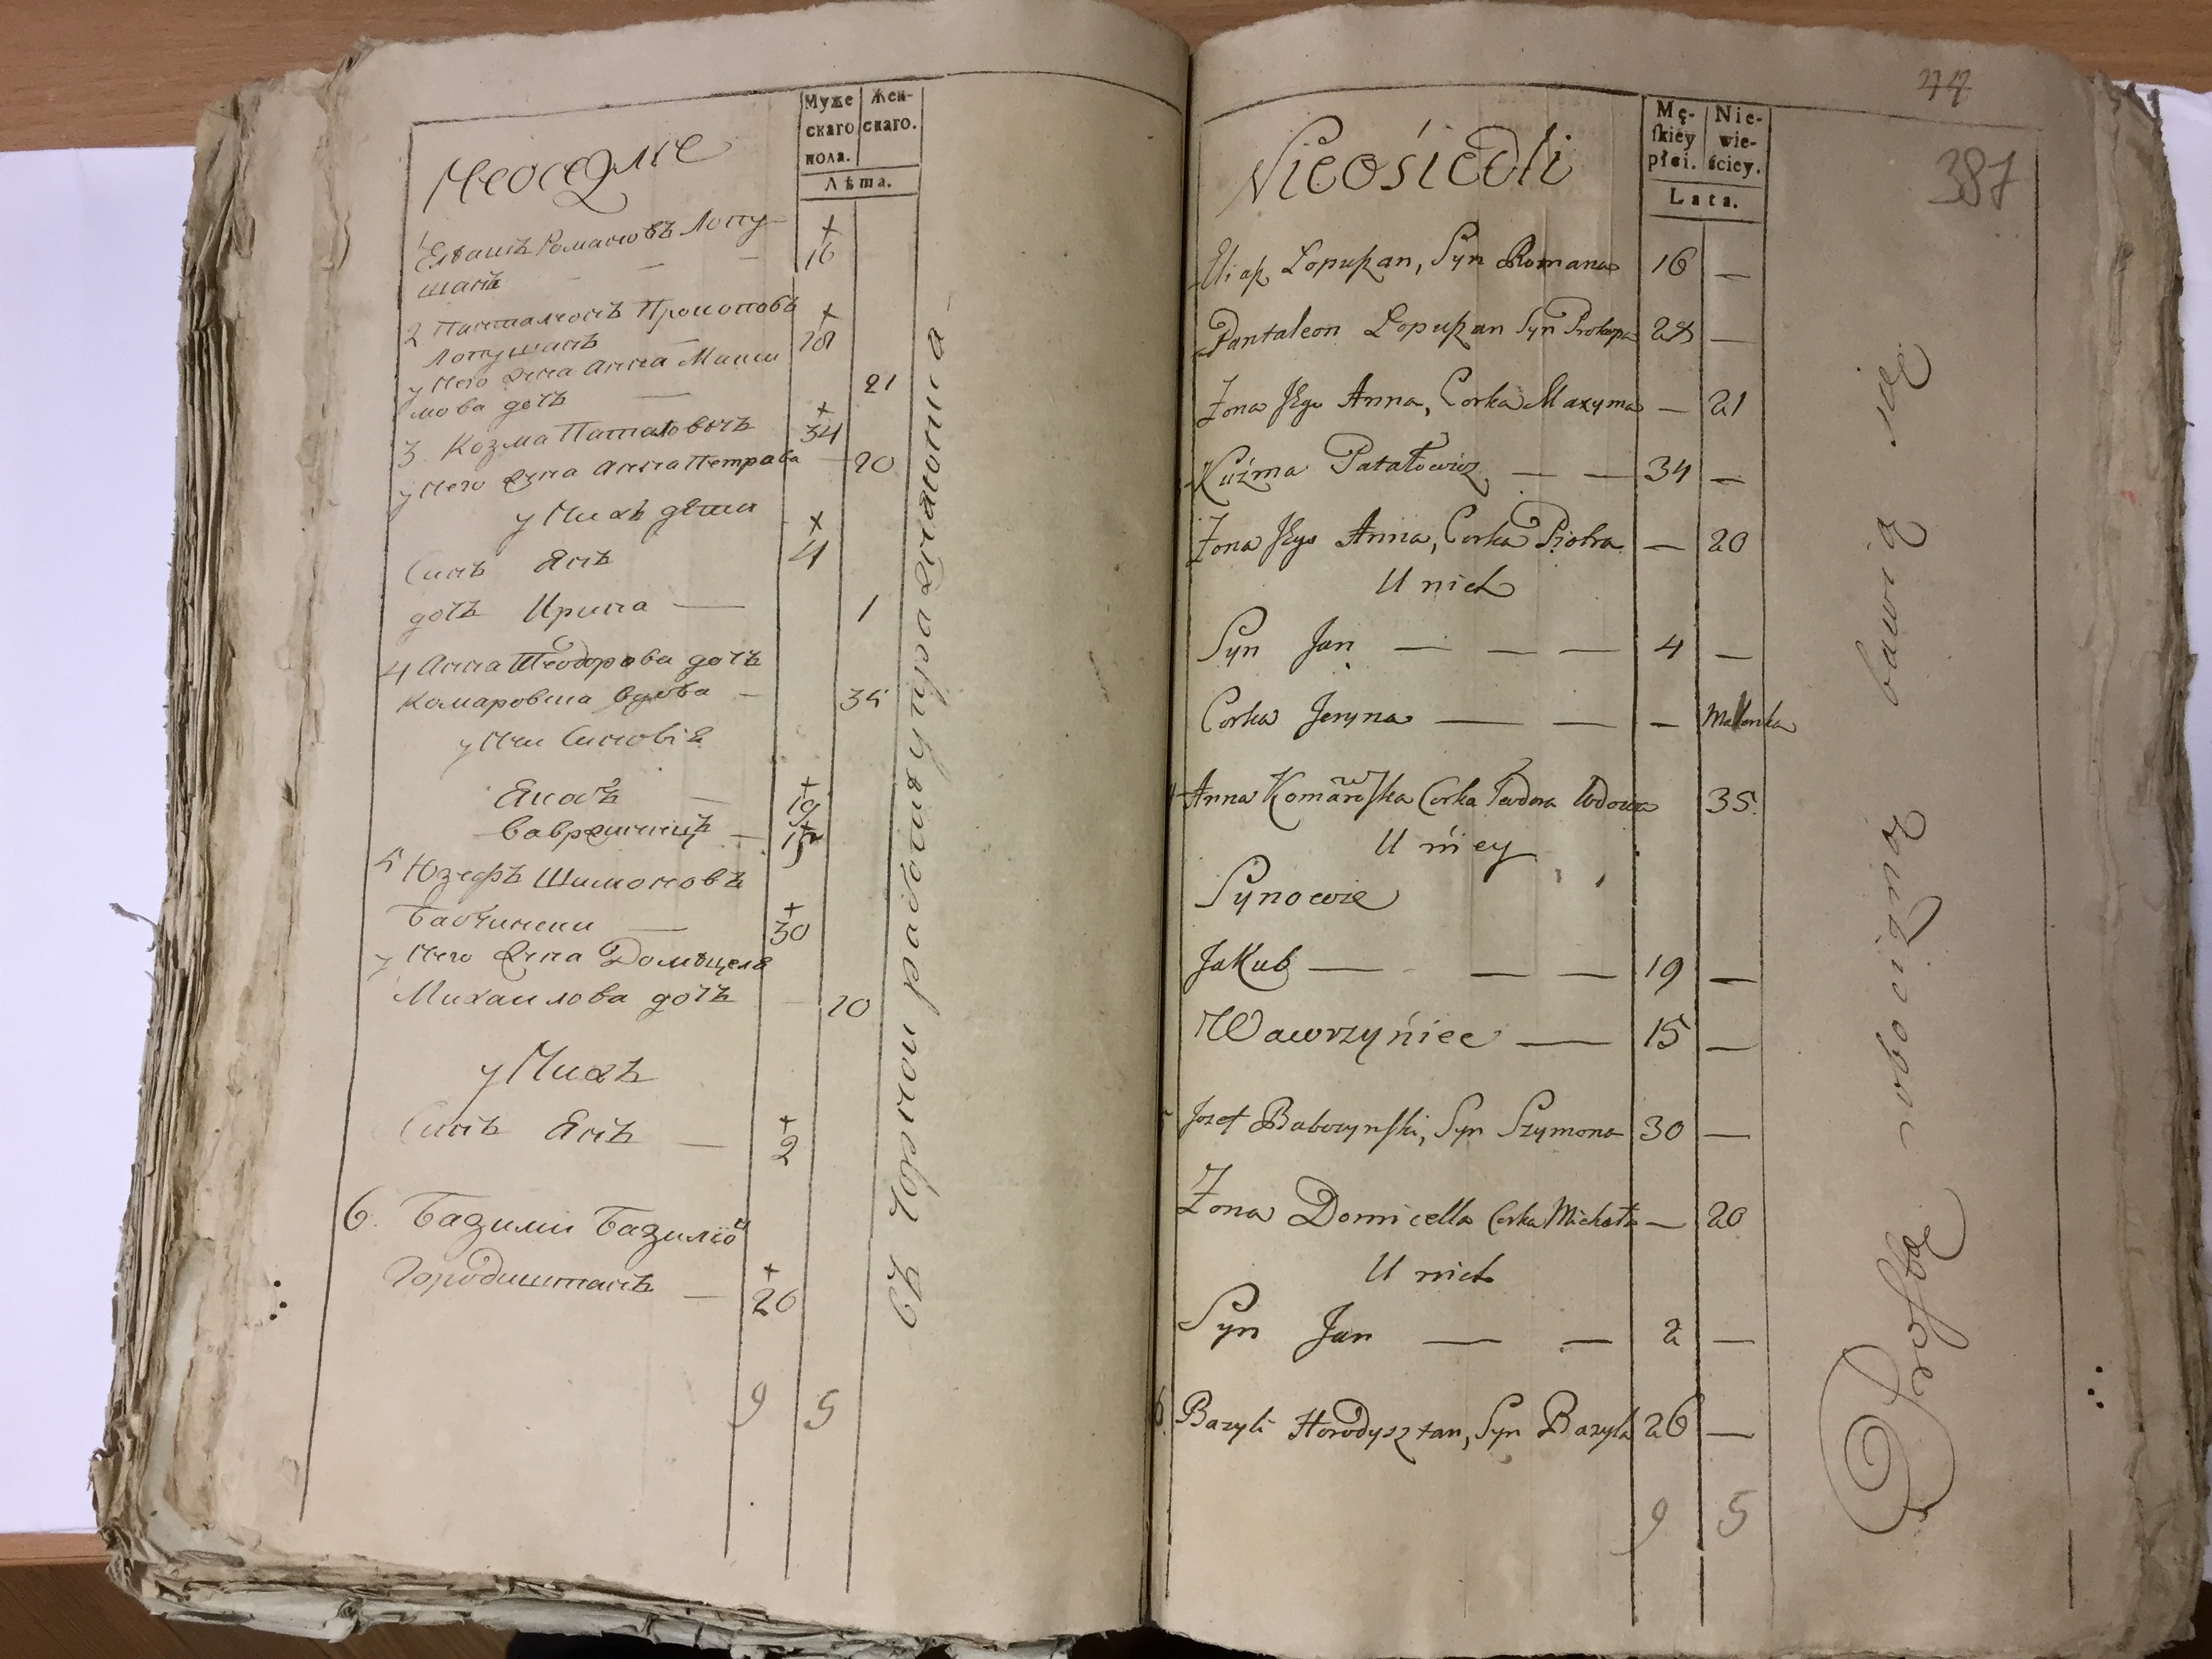 Муже
скаго
пола.
Жен-
скаго.
Лѣта.
Неоседлие
1 Еліашъ Романовъ Лопу-
шанъ — — 16
2 Панталіонъ Прокоповъ
Лопушанъ — 28
у него жена Анна Макси
мова дочь — 21
3. Козма Паталовичъ 34
у него жена Анна Петрова — 20
у нихъ дѣти
Синъ Янъ 4
дочъ Ирина — 1
4 Анна Теодорова дочъ
Комаровска вдова — 35
у неи Синовіе
Якобъ — 19
Вавренецъ — 15
5 Юзефъ Шимоновъ
Бабчински — 30
у него жена Домицеля
Михаилова дочъ — 20
у нихъ
Синъ Янъ — 2
6. Базили Базиліо
Городиштанъ — 26
9 5
въ чорнои работе упражнаютца
44
387
Mę-
skiey
płci.
Nie-
wie-
ściey.
Lata.
Nieośiedli
Eliaß Łopußan, Syn Romana 16 —
Pantaleon Łopußan Syn Prokopa 28 —
Żona Jego Anna, Corka Maxyma — 21
Kuźma Patałowicz — — 34 —
Żona Jego Anna, Corka Piotra — 20
U nich
Syn Jan — — — 4 —
Corka Jeryna — — —
Anna Komarowska Corka Teodora Wdowa 35
U niey
Synowie
Jakub — — — 19 —
Wawrzyńiec — 15 —
Jozef Babczynski, Syn Szymona 30 —
Żona Domicella Corka Michała — 20
U nich
Syn Jan — — 2 —
6. Bazyli Horodysztan, Syn Bazyla 26 —
9 5
Prostą robocizną bawią się